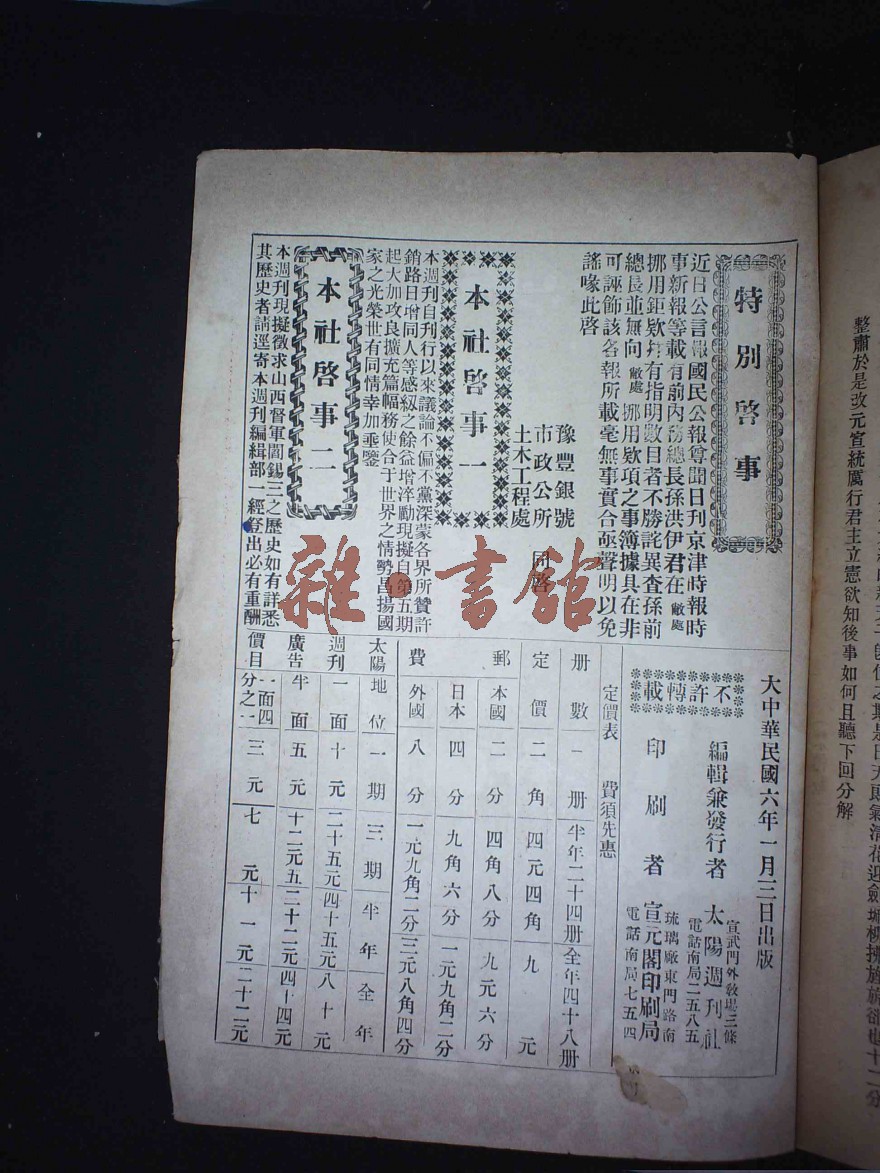 特別啓事
近日公言報國民公報尊聞日刊京津時報時
事新報等載有前內務總長孫洪伊君在敝處
挪用鉅欵并有指明數目者不勝詫異查孫前
總長並無向敝處挪用欵項之事簿據具在非
可誣飾該各報所載毫無事實合亟聲明以免
謠喙此啓
豫豐銀號
市政公所 同啓
土木工程處
本社啓事一
本週刊自刊行以來議論不偏不黨深蒙各界所贊許
銷路日增同人等感紉之餘益增淬勵現擬自第五期
起大加改良擴充篇幅務使合于世界之情勢昌揚國
家之光榮世有同情幸加垂鑒
本社啓事二
本週刊現擬徵求山西督軍閻錫三之歷史如有詳悉
其歷史者請逕寄本週刊編緝部一經登出必有重酬
大中華民國六年一月三日出版
不許轉載
編輯兼發行者 太陽週刊社
宣武門外敎場三條
電話南局二五八五
印刷者 宣元閣印刷局
琉璃廠東門路南
電話南局七五四
定價表 費須先惠
册數 一册 半年二十四册 全年四十八册
定價 二角 四元四角 九元
郵費
本國 二分 四角八分 九元六分
日本 四分 九角六分 一元九角二分
外國 八分 一元九角二分 三元八角四分
太陽週刊廣告價目
地位 一期 三期 半年 全年
一面 十元 二十五元 四十五元 八十元
半面 五元 十二元五 二十二元 四十四元
一面四分之一 三元 七元 十一元 二十二元
雜·書館
整肅於是改元宣統厲行君主立憲欲知後事如何且聽下回分解